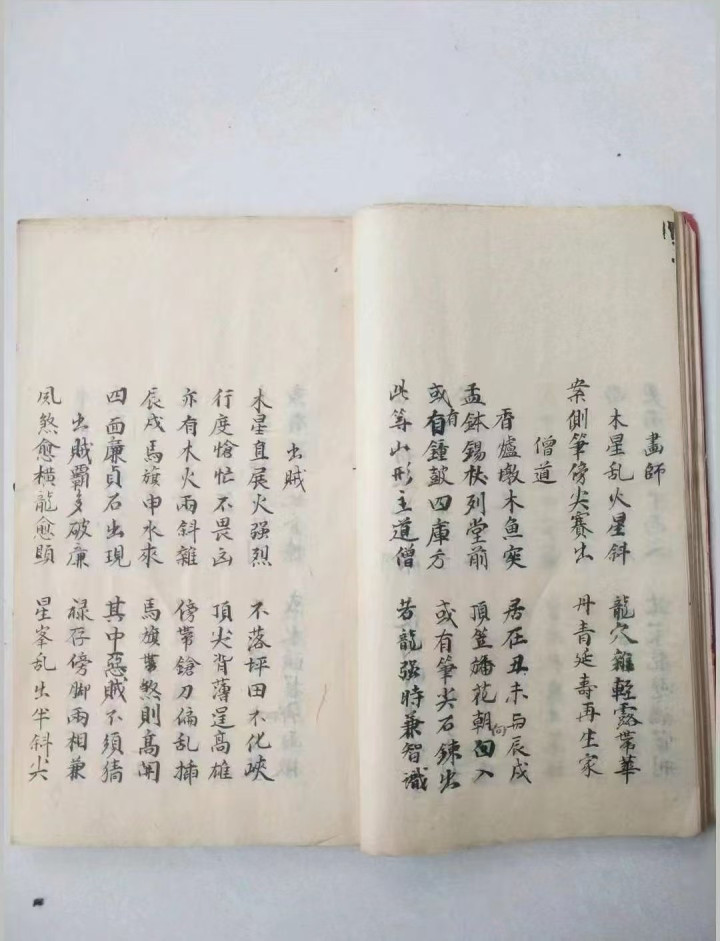 畫師
木星乱火星斜 龍穴雖輕露帶華
案側筆傍尖賽出 丹青延壽再生家
僧道
香爐墩木魚突 居在丑未与辰戌
盂鉢錫杖列堂前 頂笠旛花朝向入
或有鐘皷四庫方 或有筆尖石鍊出
此等山形主道僧 若龍强時兼智識
出賊
木星直展火强烈 不落坪田不化峽
行度愴忙不畏凶 頂尖背薄逞高雄
亦有木火兩斜雜 傍帶鎗刀偏乱揷
辰戌馬旗申水來 馬旗帶煞則高闡
四面廉貞石出現 其中惡賊不須猜
出賊覇多破廉 禄存傍脚兩相兼
風煞愈橫龍愈顕 星峯乱出半斜尖